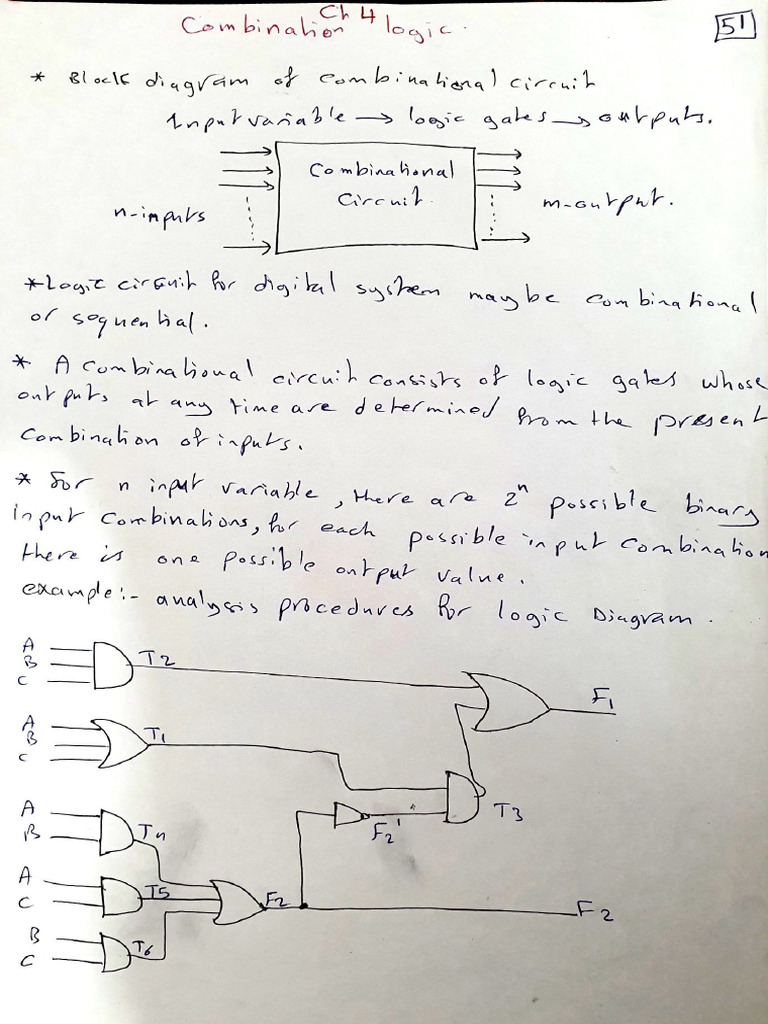 Ch 4
Combination logic.
51
* Block diagram of combinational circuit
Input variable → logic gates → outputs.
Combinational
Circuit
n-inputs
m-output.
* Logic circuit for digital system maybe combinational
or sequential.
* A combinational circuit consists of logic gates whose
outputs at any time are determined from the present
Combination of inputs.
* for n input variable, there are 2ⁿ possible binary
input combinations, for each possible input combination
there is one possible output value.
example:- analysis procedures for logic Diagram.
A
B
C
T2
F1
A
B
C
T1
T3
A
B
T4
F2'
A
C
T5
F2
F2
B
C
T6